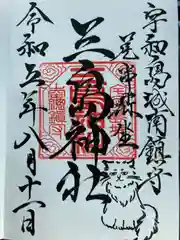 宇和嶋城南鎮守
鎮座
三島神社
令和五年八月十一日